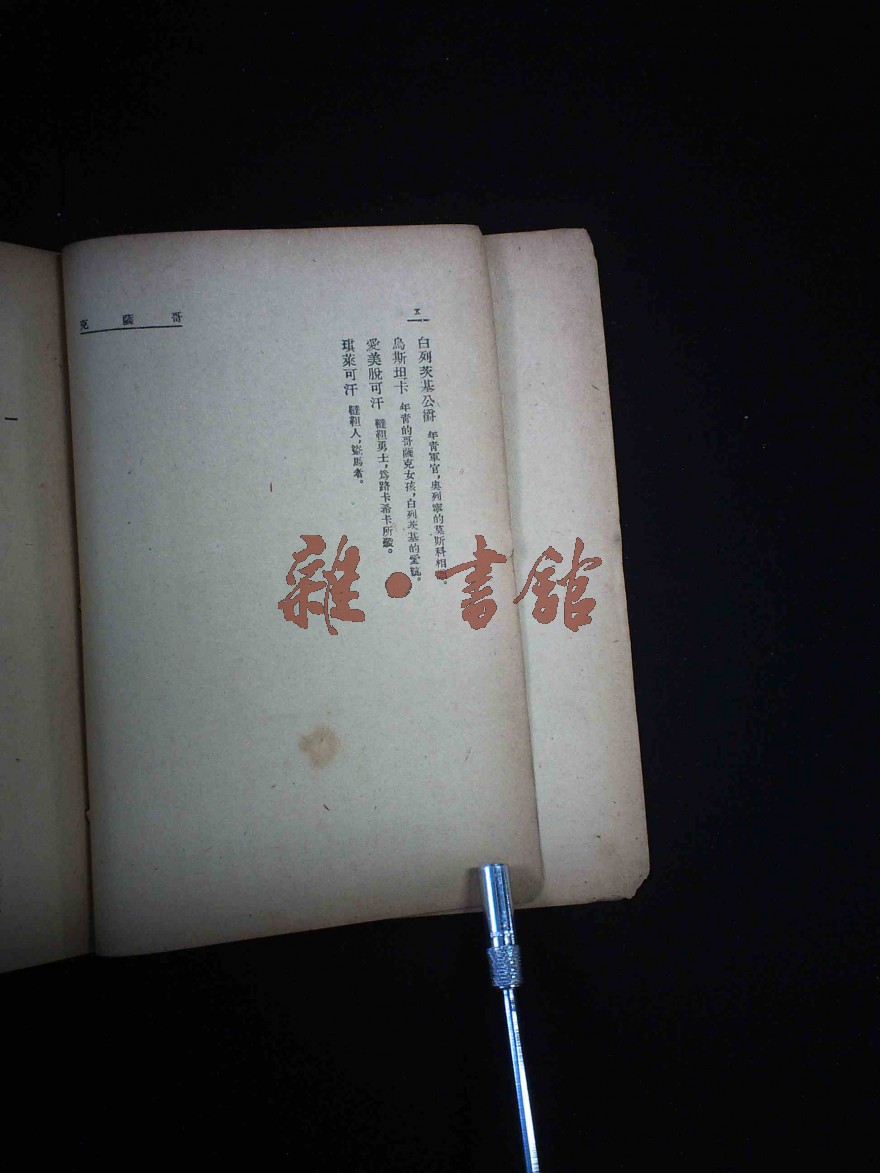 哥薩克
x
白列茨基公爵 年青軍官，奧列寧的莫斯科相。
烏斯坦卡 年青的哥薩克女孩，白列茨基的愛。
愛美脫可汗 韃靼勇士，爲路卡希卡所。
琪萊可汗 韃靼人，盜馬者。
雜·書館